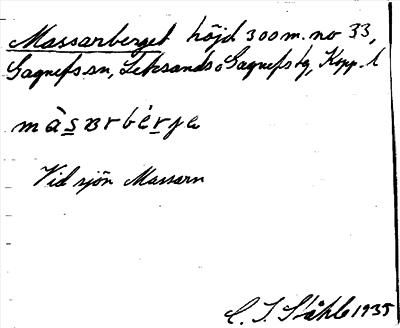 Massarberget höjd 300 m. no 33,
Gagnefs sn, Leksands o Gagnefs tg, Kopp. l
màsɐrbèrje
Vid sjön Massarn
C. I. Ståhle 1935